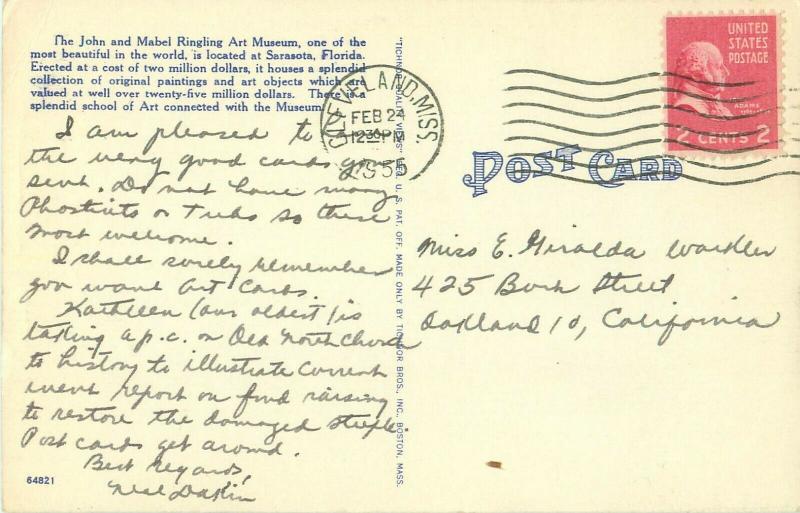 The John and Mabel Ringling Art Museum, one of the
most beautiful in the world, is located at Sarasota, Florida.
Erected at a cost of two million dollars, it houses a splendid
collection of original paintings and art objects which are
valued at well over twenty-five million dollars. There is a
splendid school of Art connected with the Museum.
I am pleased to
the very good cards you
sent. Do not have many
or so these
most welcome.
I shall surely remember
you want Art Cards.
Kathleen (our oldest) is
taking a p.c. on Old North Church
to history to illustrate current
event report on fund raising
to restore the damaged steeple.
Post cards get around.
Best regards,
Neal Dakin
64821
"TICHNOR QUALITY VIEWS" REG. U. S. PAT. OFF. MADE ONLY BY TICHNOR BROS., INC., BOSTON, MASS.
CLEVELAND, MISS.
FEB 24
12 30 PM
1955
UNITED
STATES
POSTAGE
ADAMS
2 CENTS 2
POST CARD
Miss E. Giralda
425 Street
Oakland 10, California